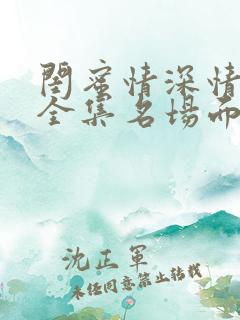 閨蜜情深情
全集名場面
沈正軍
未经同意禁止转载